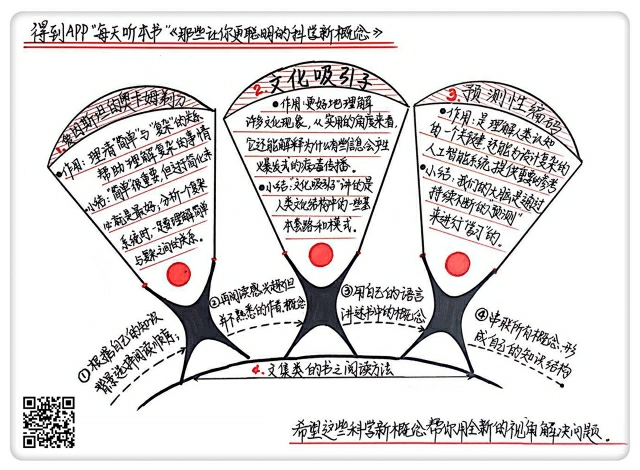 得到APP"每天听本书"《那些让你更聪明的科学新概念》
1.爱因斯坦的奥卡姆剃刀
●作用:理清"简单"与"复杂"的关系,
帮助理解复杂的事情
●小结:"简单"很重要,但过于简化未
必就是最好,分析一个复杂
系统时一定要理解简单
与复杂之间的关系。
2.文化吸引子
●作用:更好地理解
许多文化现象,从实用的角度来看,
它还能解释为什么有些信息会产生
爆发式的病毒传播。
●小结:"文化吸引子"讲的是
人类文化结构中的一些基
本套路和模式。
3.预测性编码
●作用:是理解人类认知
的一个关键,也能为设计复杂的
人工智能系统,提供重要的参考
●小结:我们的大脑是通过
"持续不断的预测"
来进行"学习"的。
①根据自己的知识
背景选择阅读顺序;
②再阅读感兴趣但
并不熟悉的作者、概念
③用自己的语言
讲述书中的概念
④串联所有概念,形
成自己的知识结构
4.文集类的书之阅读方法
希望这些科学新概念帮你用全新的视角解决问题。